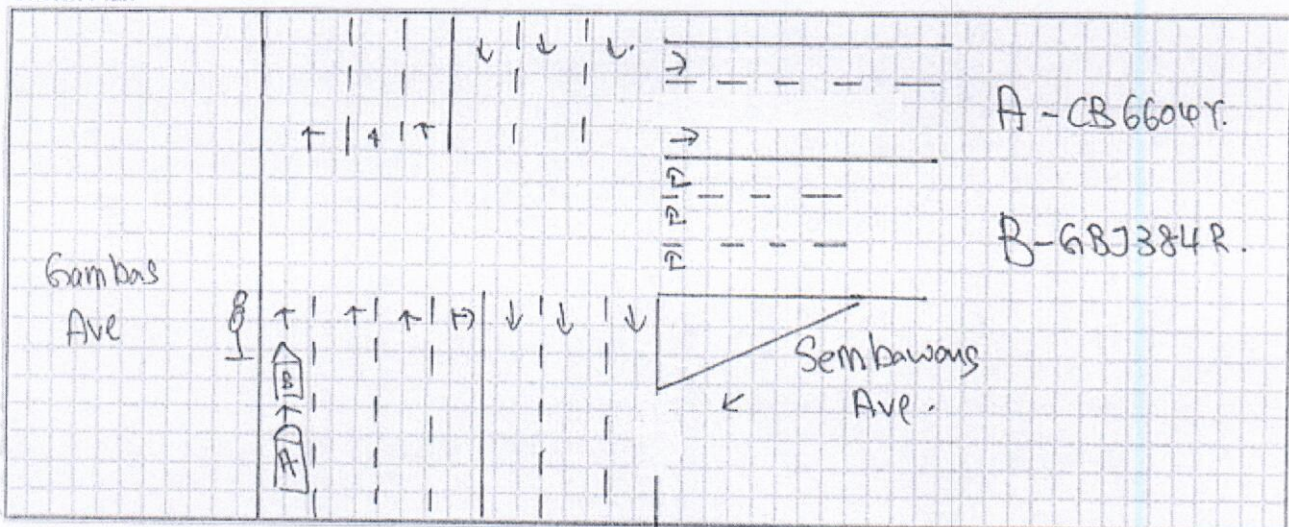 A - CB6604Y.
B - GBJ384R.
Gambas
Ave
Sembawang
Ave.
B
A